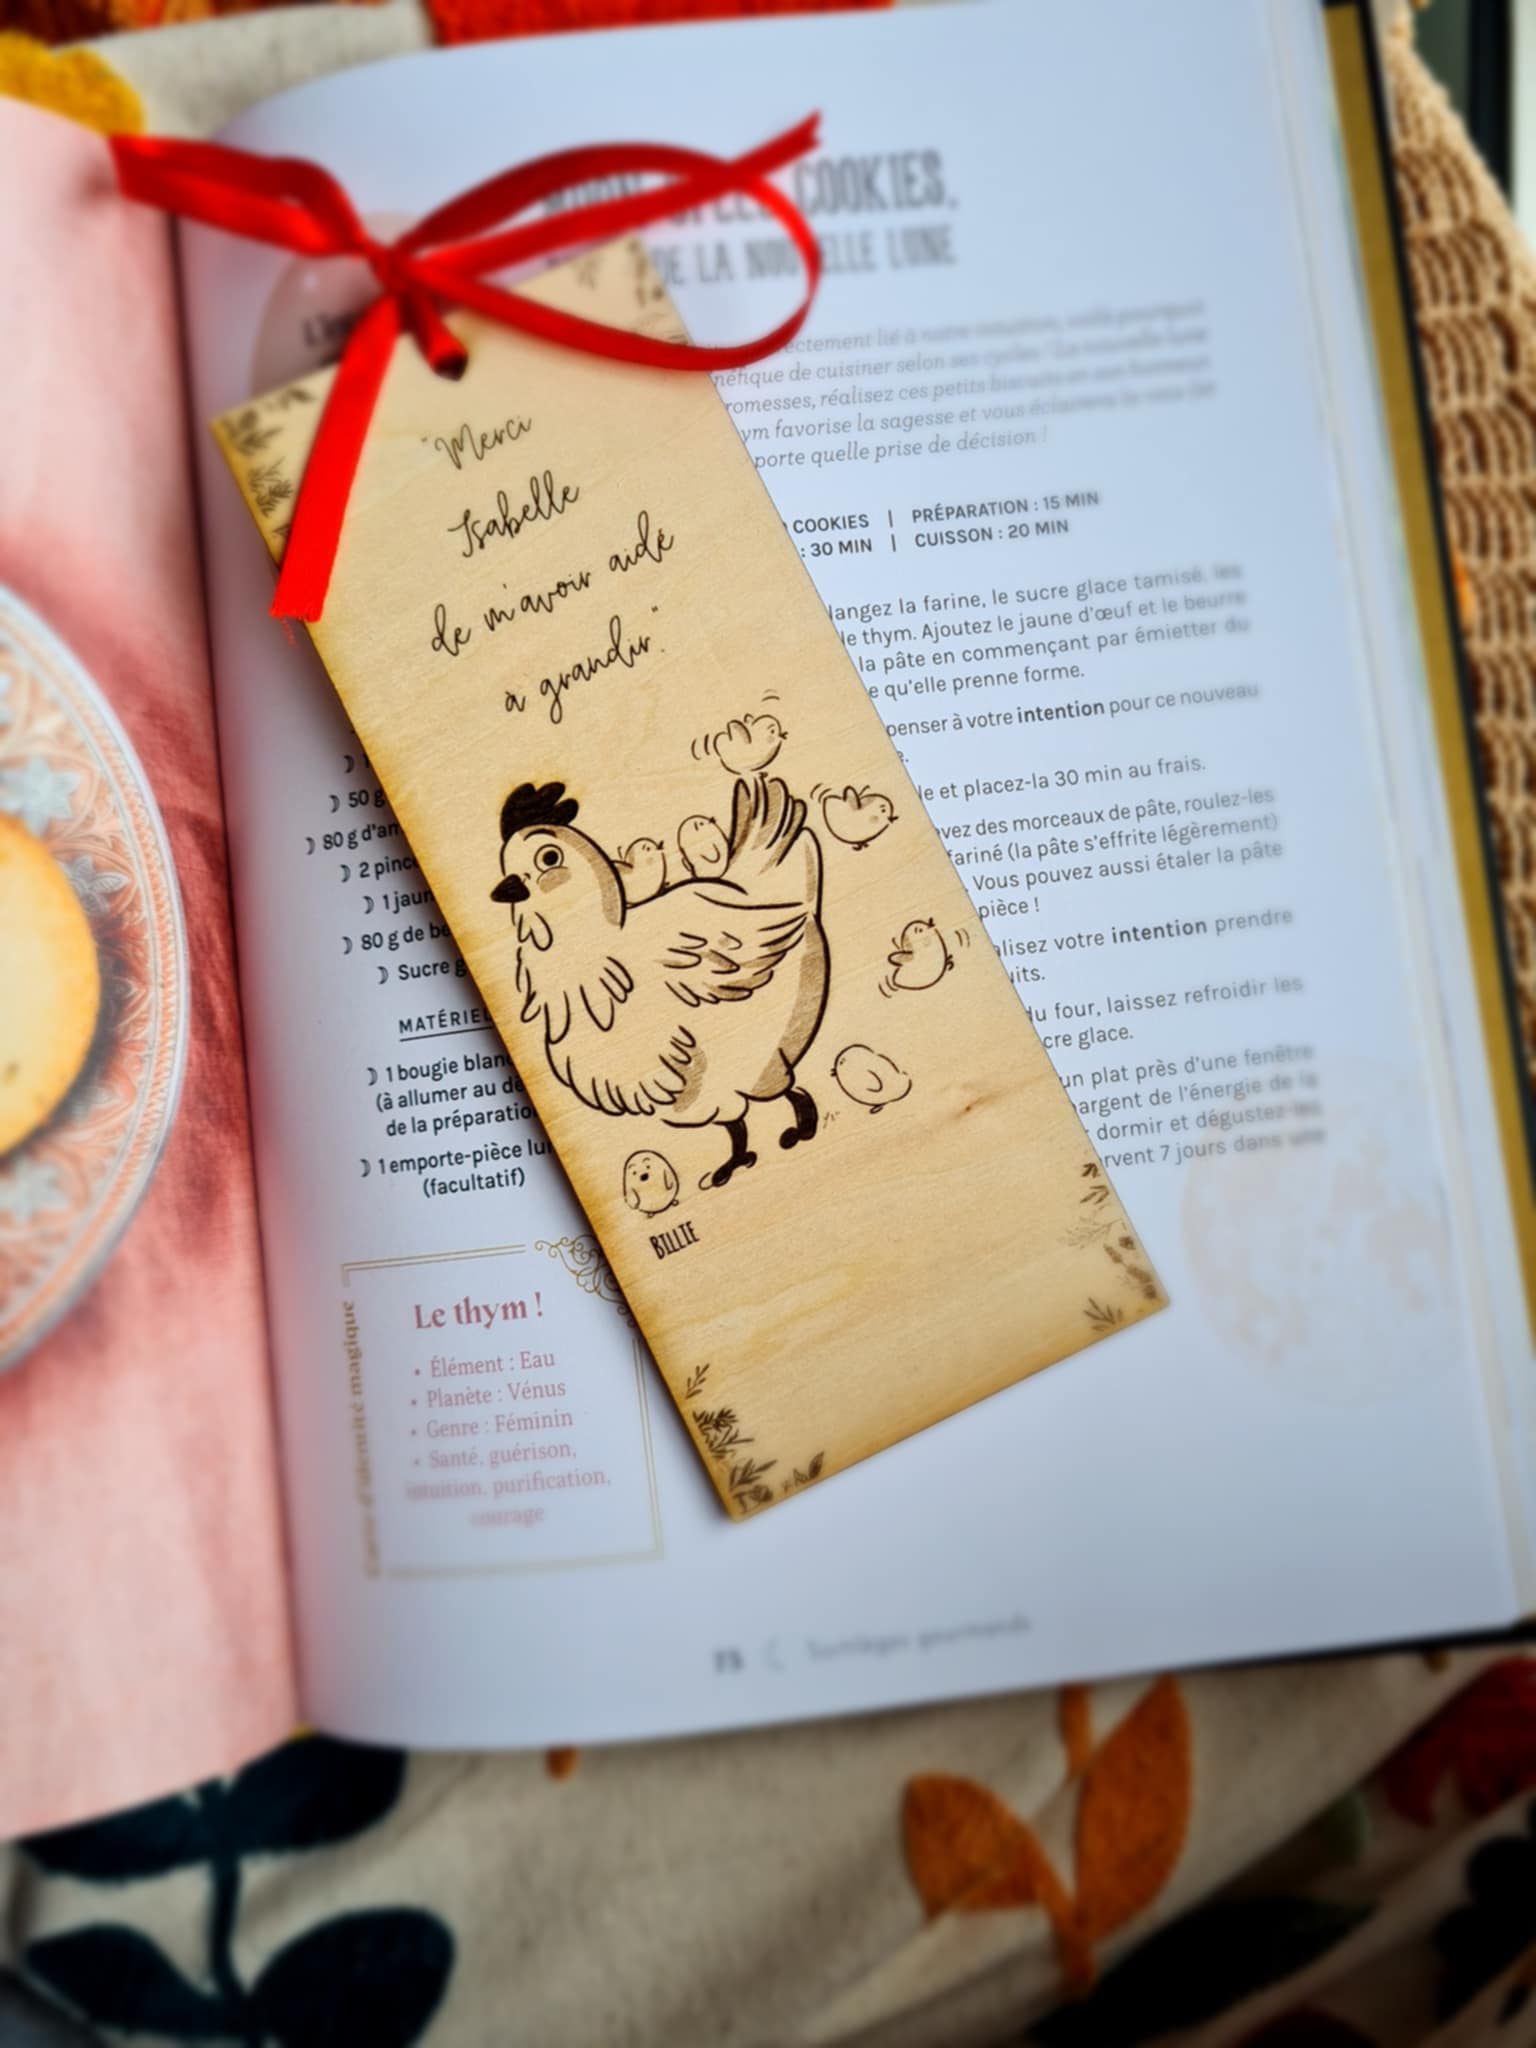 COOKIES,
DE LA NOUVELLE LUNE
ectement lié à notre intuition, voilà pourquoi
néfique de cuisiner selon ses cycles ! La nouvelle lune
romesses, réalisez ces petits biscuits en son honneur.
ym favorise la sagesse et vous éclairera la voie
porte quelle prise de décision !
COOKIES | PRÉPARATION : 15 MIN
: 30 MIN | CUISSON : 20 MIN
langez la farine, le sucre glace tamisé, les
le thym. Ajoutez le jaune d'œuf et le beurre
la pâte en commençant par émietter du
e qu'elle prenne forme.
penser à votre intention pour ce nouveau
e.
le et placez-la 30 min au frais.
vez des morceaux de pâte, roulez-les
fariné (la pâte s'effrite légèrement)
. Vous pouvez aussi étaler la pâte
pièce !
alisez votre intention prendre
uits.
du four, laissez refroidir les
cre glace.
un plat près d'une fenêtre
argent de l'énergie de la
dormir et dégustez-les
rvent 7 jours dans une
"Merci
Isabelle
de m'avoir aidé
à grandir."
BILLIE
50 g
80 g d'am
2 pinc
1 jaun
80 g de be
Sucre g
MATÉRIEL
1 bougie blan
(à allumer au dé
de la préparatio
1 emporte-pièce lu
(facultatif)
Carte d'identité magique
Le thym !
• Élément : Eau
• Planète : Vénus
• Genre : Féminin
• Santé, guérison,
intuition, purification,
courage
73 Sortilèges gourmands